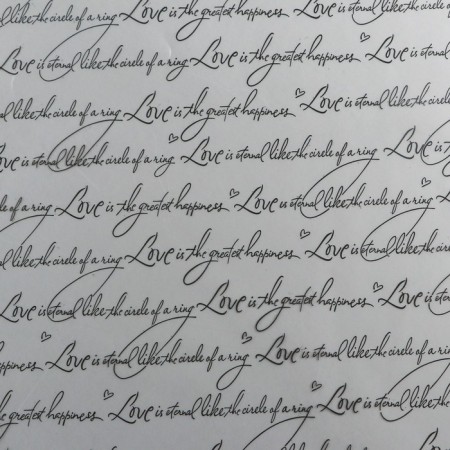 eternal like the circle of a ring Love is the greatest happiness Love
Love is eternal like the circle of a ring Love is the greatest happiness Love is eternal
like the circle of a ring Love is the greatest happiness Love is eternal like the circle
is eternal like the circle of a ring Love is eternal like the circle of a ring Love is
of a ring Love is the greatest happiness Love is eternal like the circle of a ring
like the circle of a ring Love is the greatest happiness Love is eternal like the circle of
Love is eternal like the circle of a ring Love is the greatest happiness Love is
happiness Love is eternal like the circle of a ring Love is eternal like the circle of a ring
the greatest happiness Love is eternal like the circle of a ring Love is eternal like the